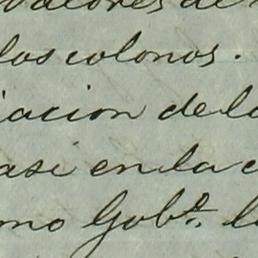 valores de
los colonos.
iacion de la
asi en la c
mo Gobº. la